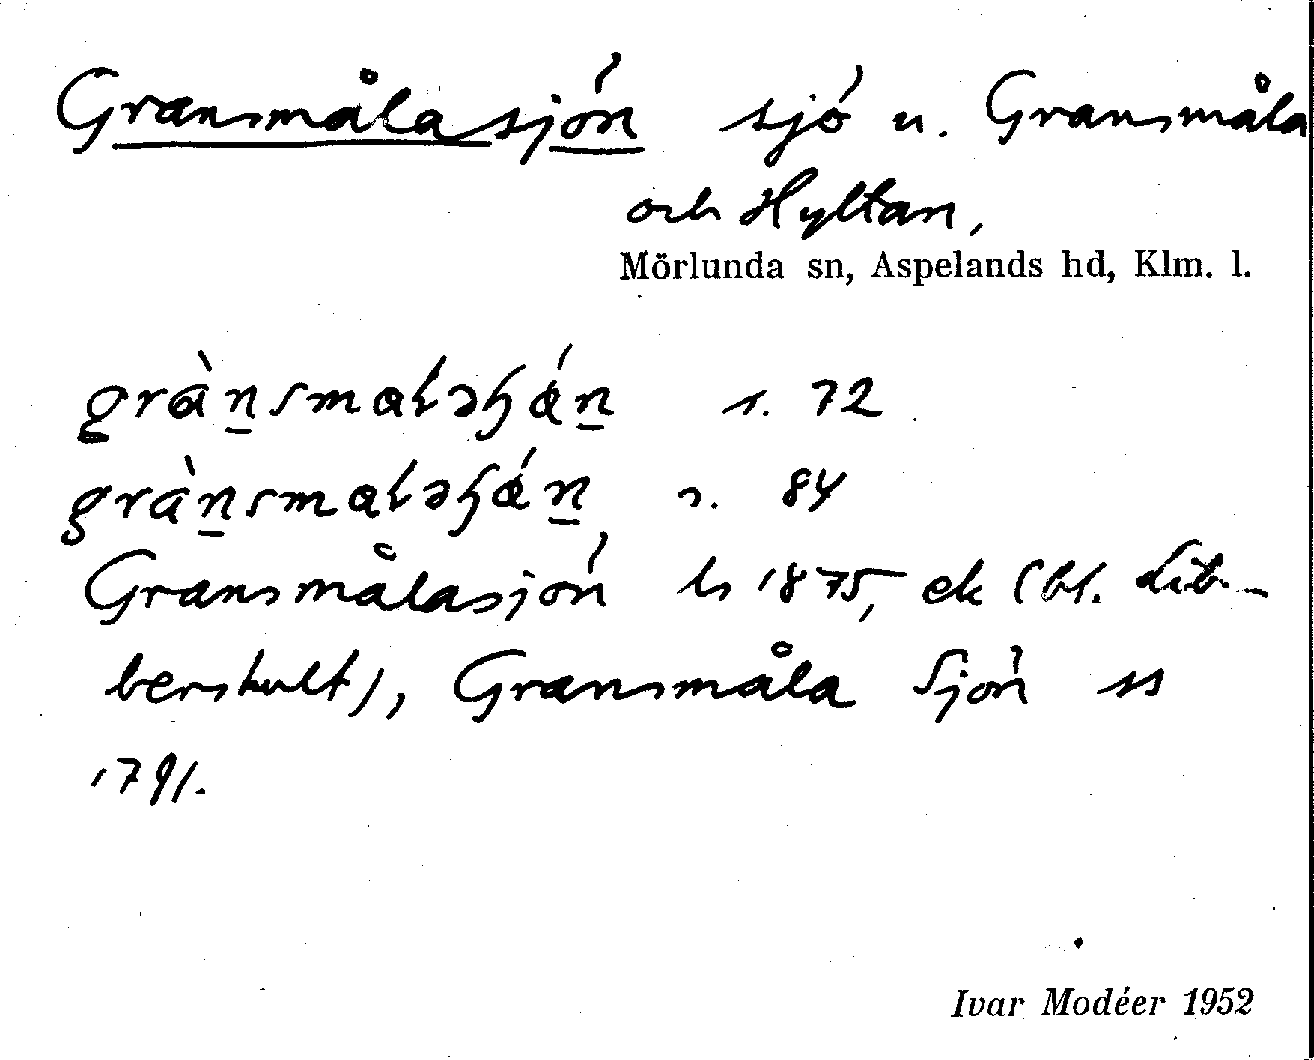 Gransmålasjön sjö u. Gransmåla
och Hyltan,
Mörlunda sn, Aspelands hd, Klm. l.
s. 72
s. 84
Gransmålasjön ls 1875, ek (bl.
berskult), Gransmåla Sjön ss
1791.
Ivar Modéer 1952